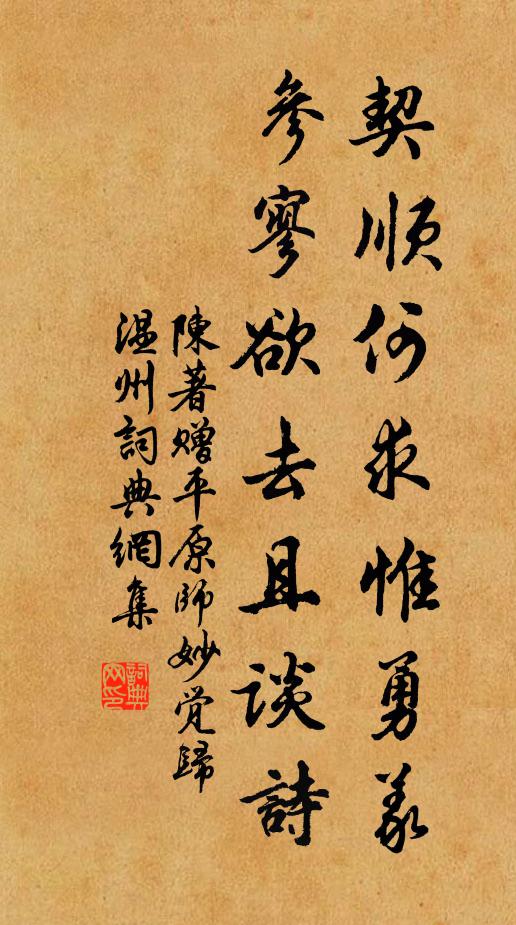 契順何求惟勇義
參寥欲去且談詩
陳著贈平原師妙覚歸
温州詞典網集
詞典网印